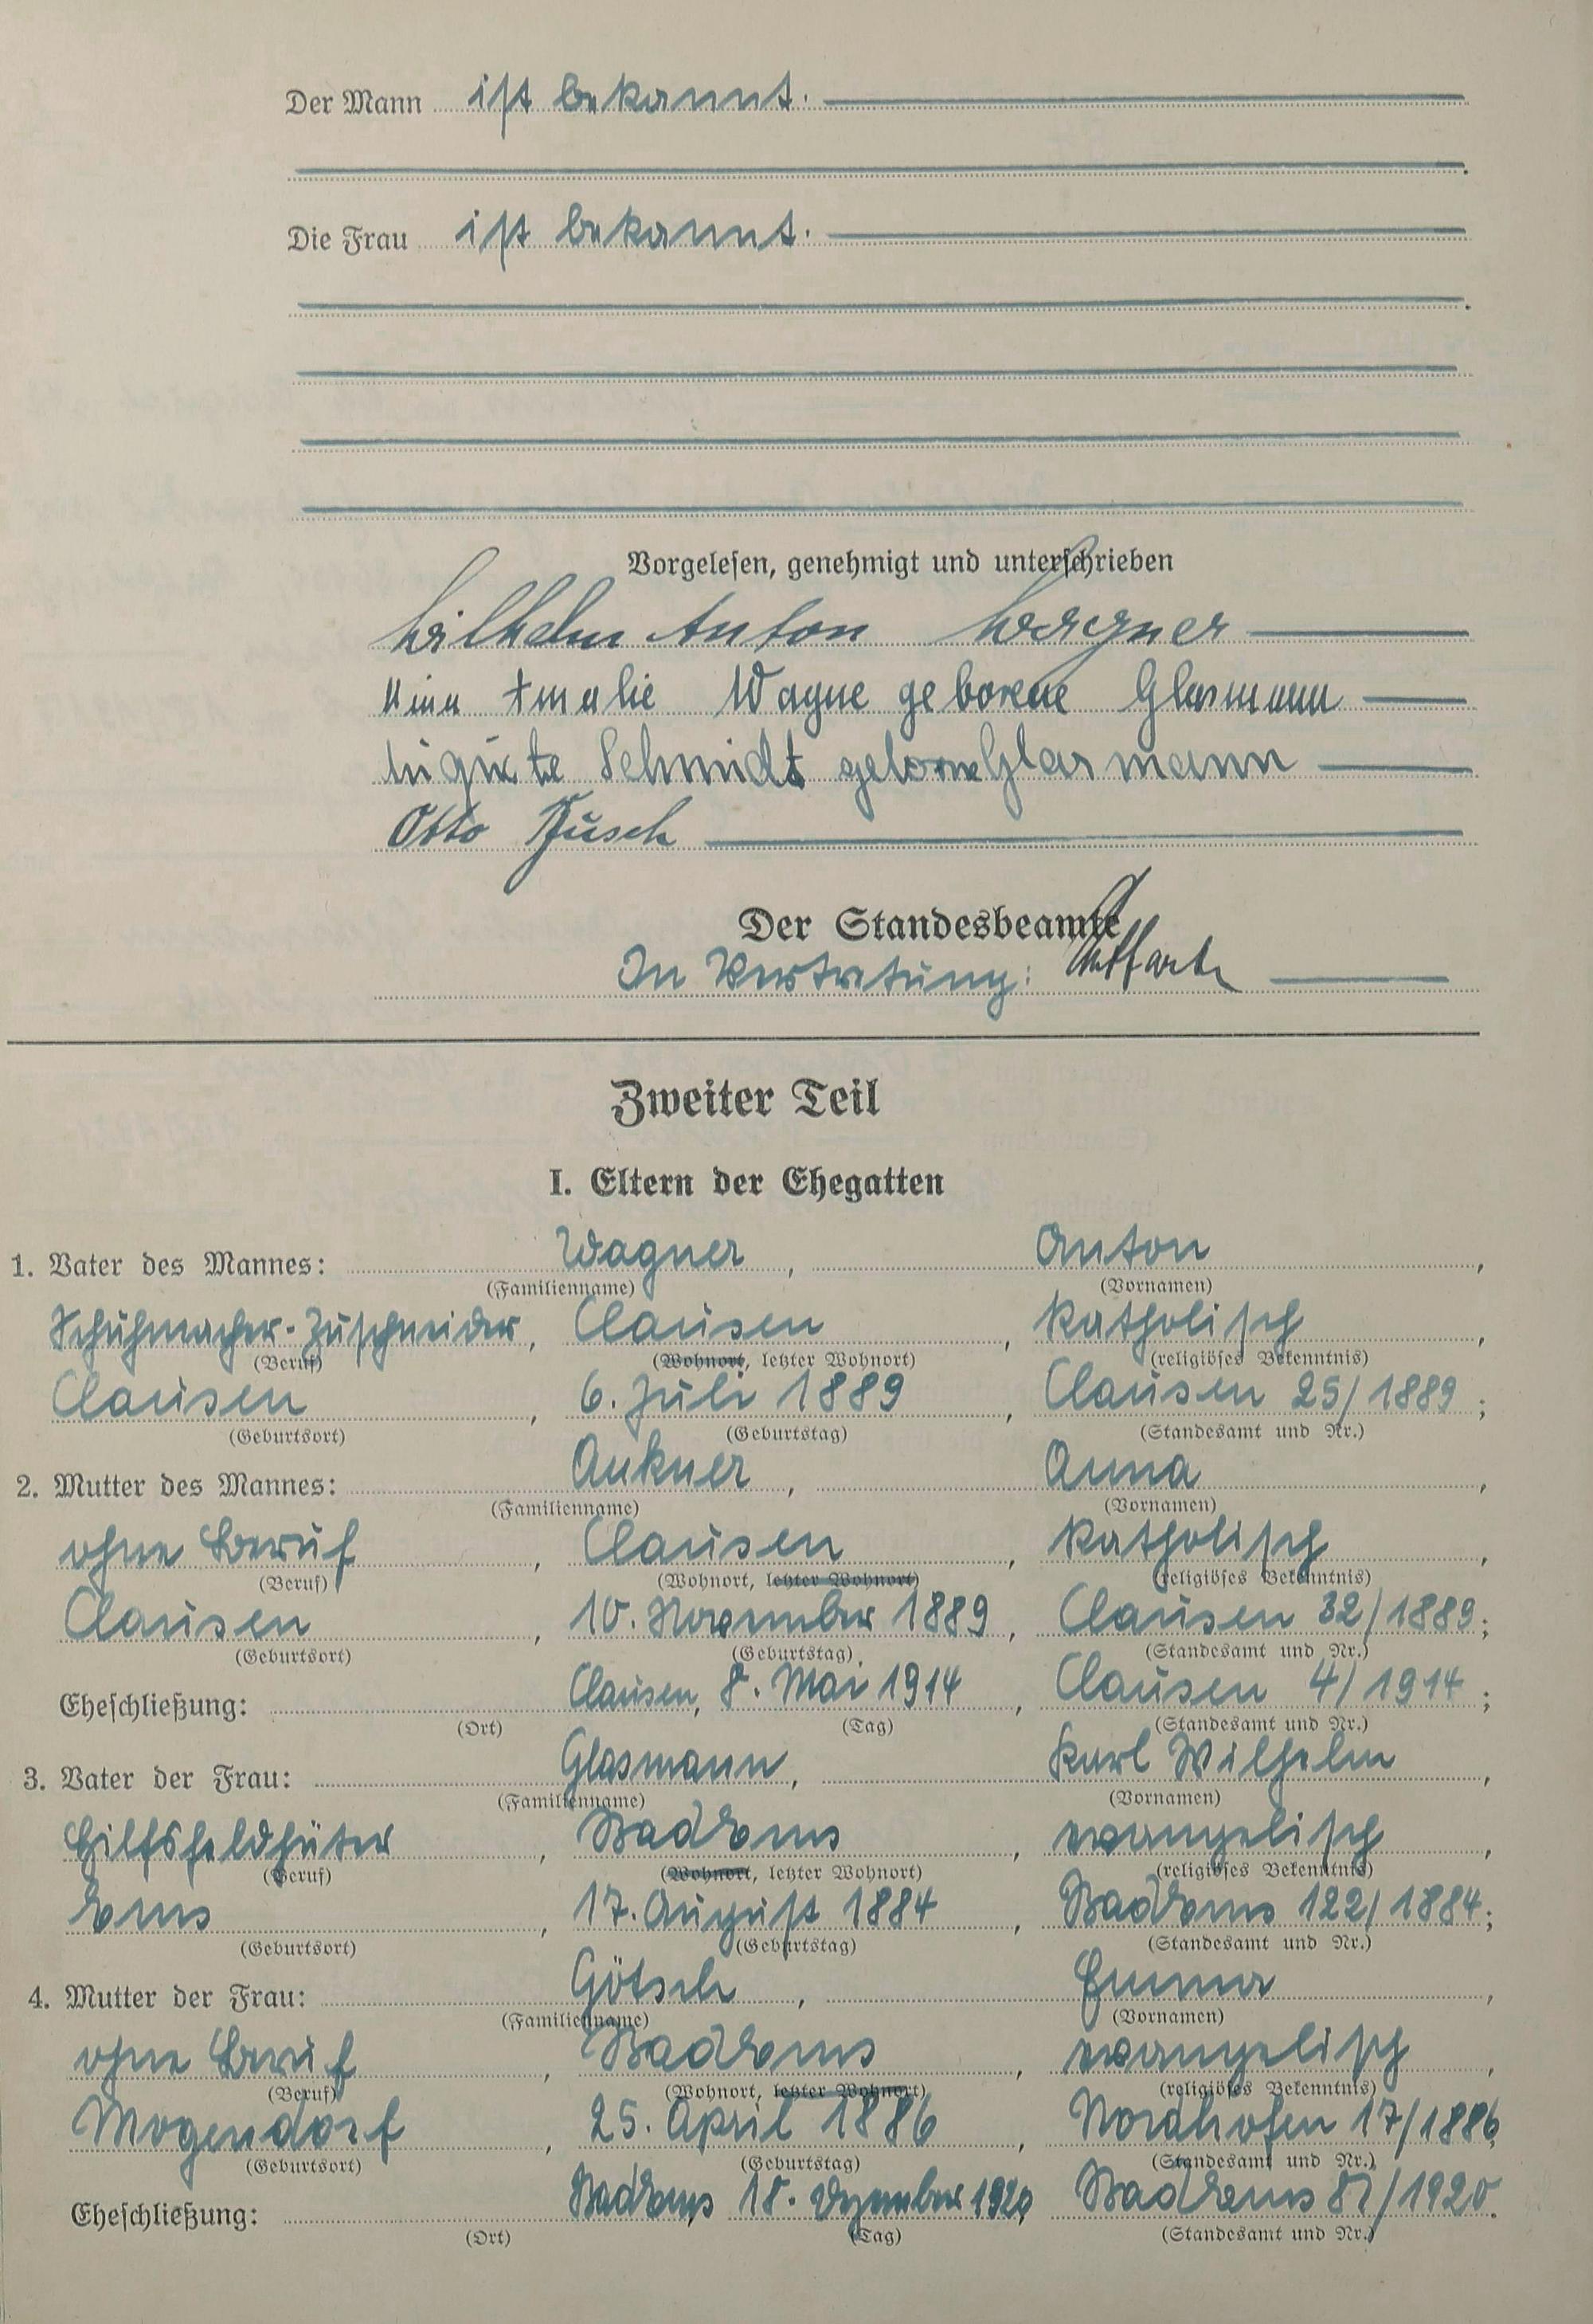 Der Mann ist bekannt.
Die Frau ist bekannt.
Vorgelesen, genehmigt und unterschrieben
Wilhelm Anton Wagner
Amalie Wagne geborene Glasmann
Schmidt geborne Glasmann
Otto Busch
Der Standesbeamte
In Vertretung:
Zweiter Teil
I. Eltern der Ehegatten
1. Vater des Mannes: Wagner, Anton,
(Familienname) (Vornamen)
Schuhmacher-Zuschneider, Clausen, katholisch,
(Beruf) (Wohnort, letzter Wohnort) (religiöses Bekenntnis)
Clausen, 6. Juli 1889, Clausen 25/1889;
(Geburtsort) (Geburtstag) (Standesamt und Nr.)
2. Mutter des Mannes: Ankner, Anna,
(Familienname) (Vornamen)
ohne Beruf, Clausen, katholisch,
(Beruf) (Wohnort, letzter Wohnort) (religiöses Bekenntnis)
Clausen, 10. November 1889, Clausen 32/1889;
(Geburtsort) (Geburtstag) (Standesamt und Nr.)
Eheschließung: Clausen, 8. Mai 1914, Clausen 4/1914;
(Ort) (Tag) (Standesamt und Nr.)
3. Vater der Frau: Glasmann, Karl Wilhelm,
(Familienname) (Vornamen)
Hilfsfeldhüter, Bad Ems, evangelisch,
(Beruf) (Wohnort, letzter Wohnort) (religiöses Bekenntnis)
Ems, 17. August 1884, Bad Ems 122/1884;
(Geburtsort) (Geburtstag) (Standesamt und Nr.)
4. Mutter der Frau: Götsch, Emma,
(Familienname) (Vornamen)
ohne Beruf, Bad Ems, evangelisch,
(Beruf) (Wohnort, letzter Wohnort) (religiöses Bekenntnis)
Mogendorf, 25. April 1886, Nordhofen 17/1886,
(Geburtsort) (Geburtstag) (Standesamt und Nr.)
Eheschließung: Bad Ems, 18. Dezember 1920, Bad Ems 87/1920.
(Ort) (Tag) (Standesamt und Nr.)